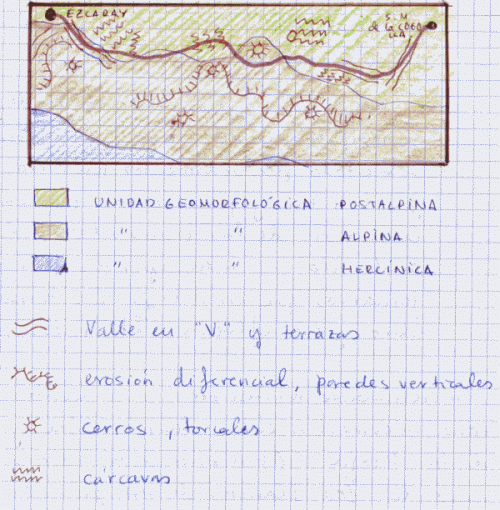 EZCARAY
S. M
de la COGO
LLA
UNIDAD GEOMORFOLÓGICA POSTALPINA
" " ALPINA
" " HERCÍNICA
Valle en "V" y terrazas
erosión diferencial, paredes verticales
cerros, torcales
cárcavas